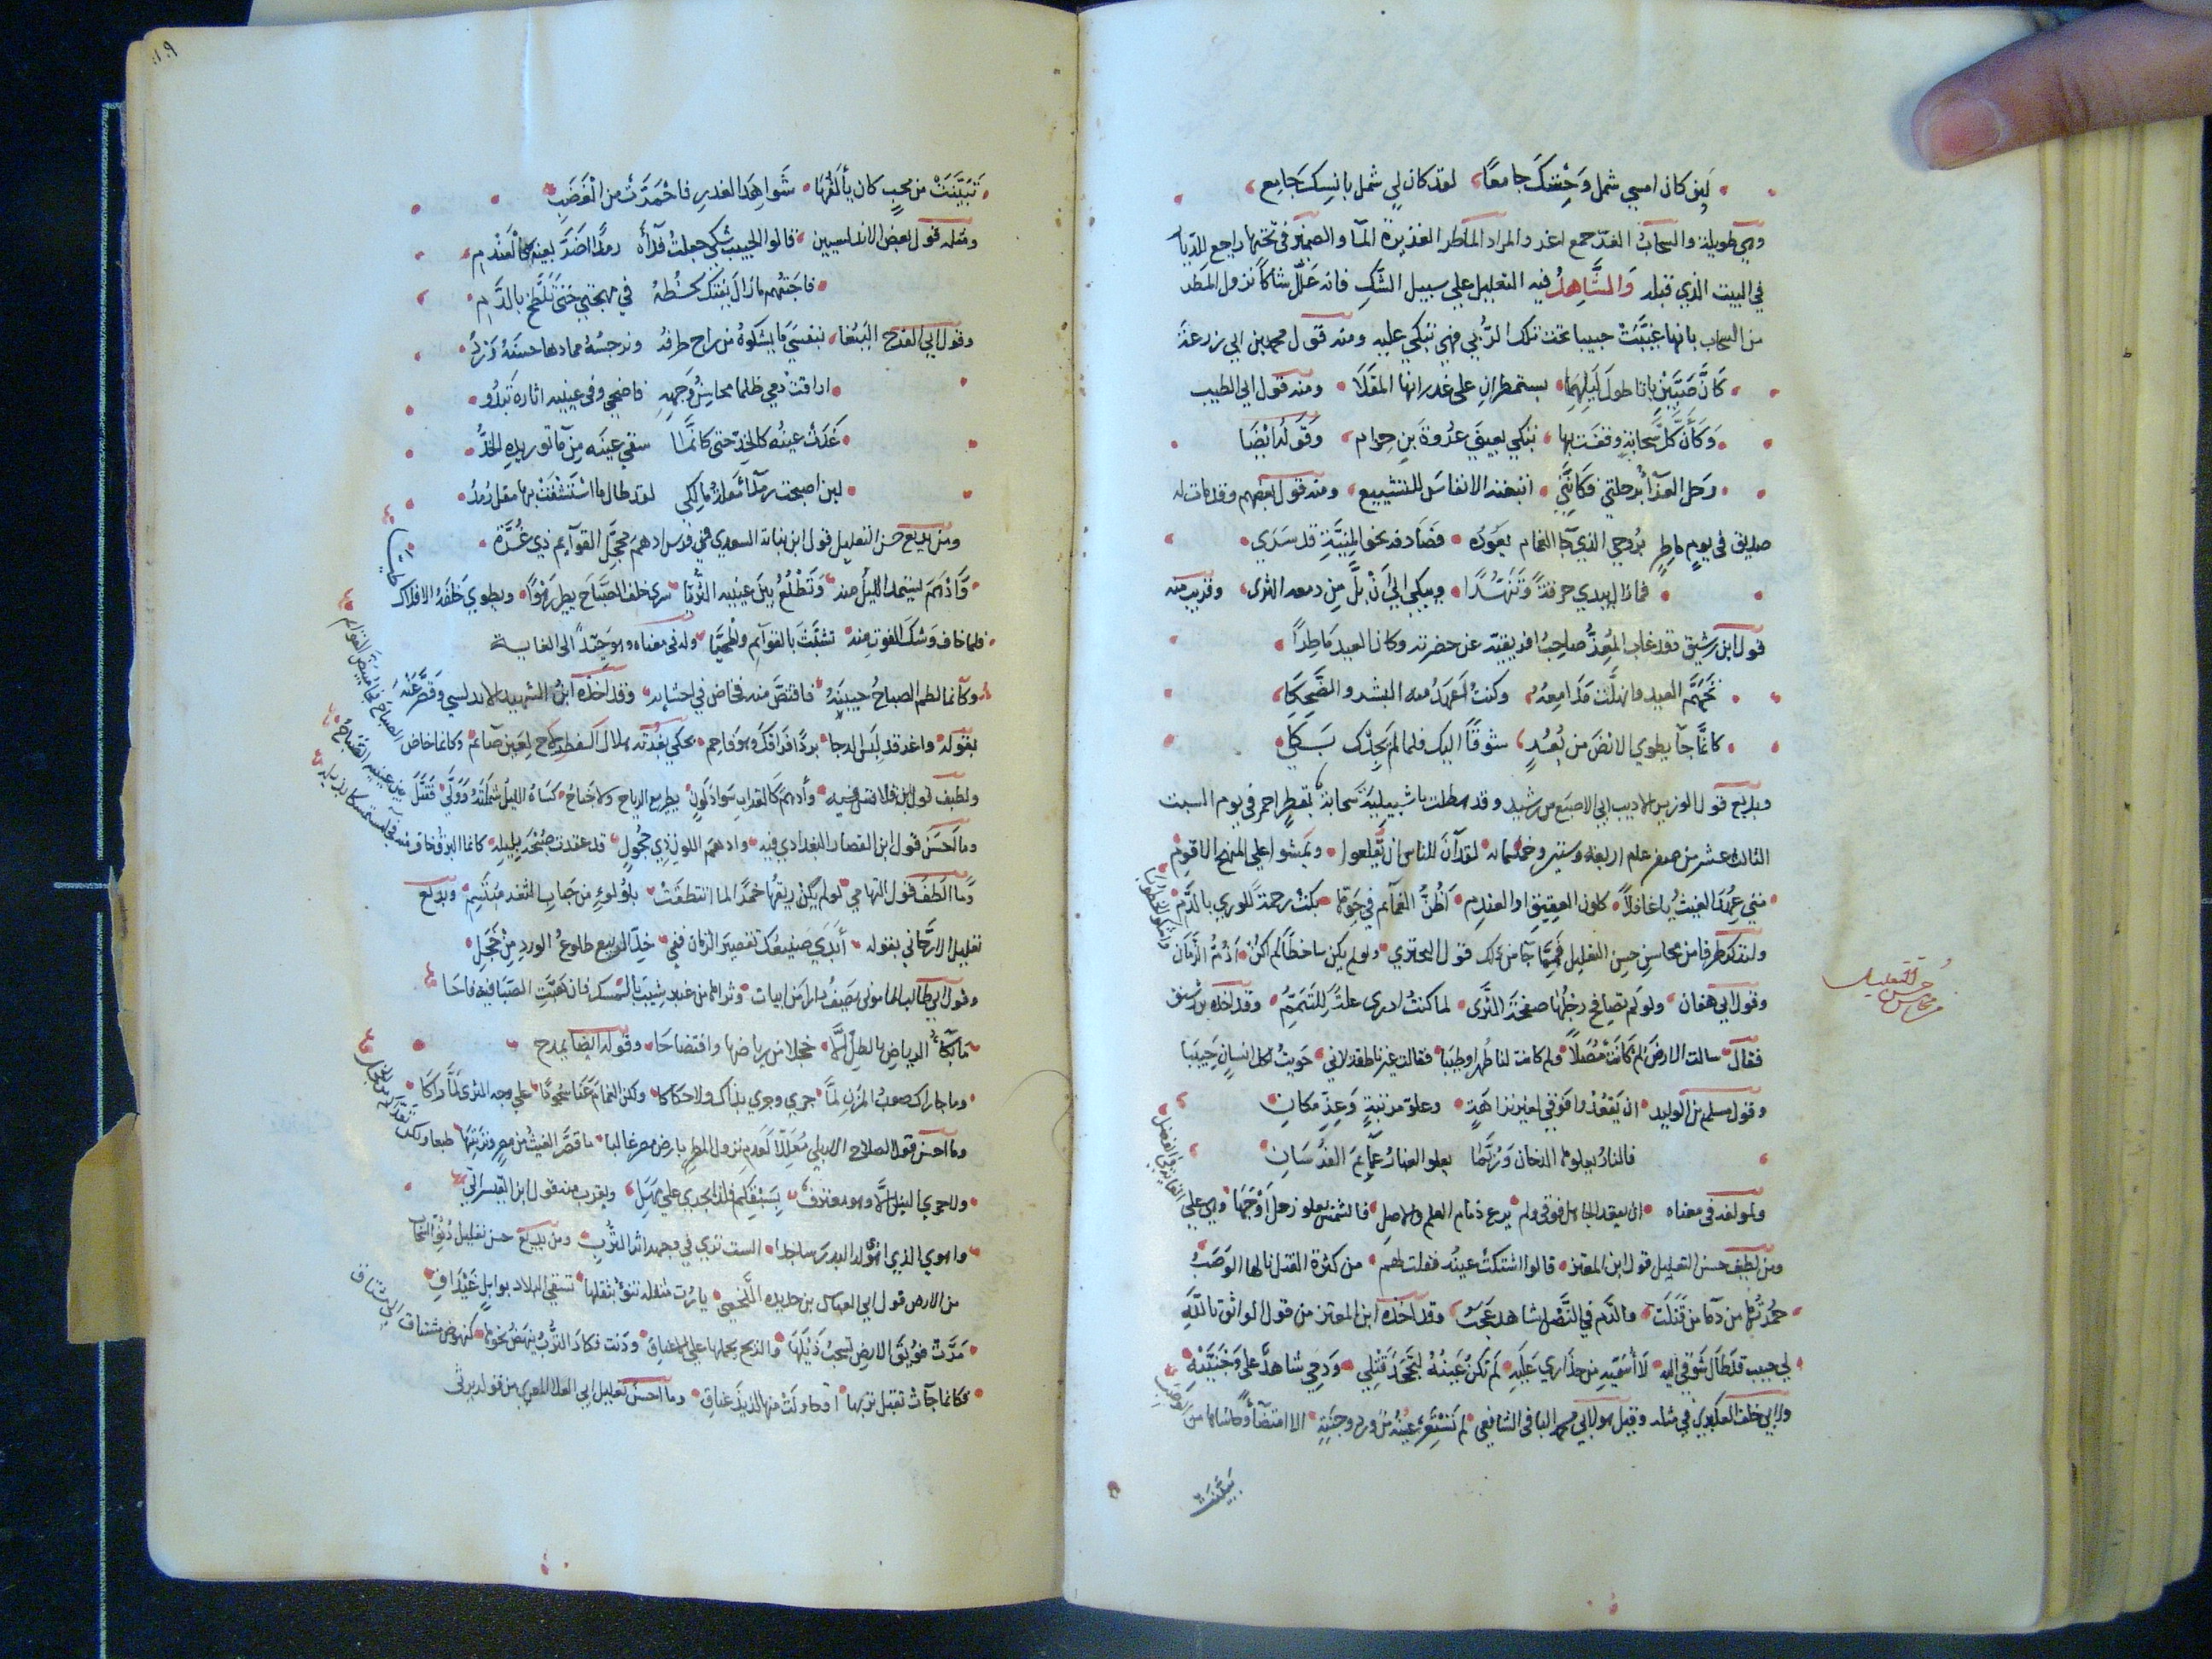 لين كان امسي شمل وحشك جامعا لقد كان لي شمل بانسك جامع
وهي طويلة والسحاب الغر جمع اغر والمراد الماطر الغزيرة الماء والضمير في تحتها راجع للديار
في البيت الذي قبله والشاهد فيه التعليل علي سبيل الشك فانه علل شاكا نزول المطر
من السحاب بانها غيبت حبيبا تحت تلك الربي فهي تبكي عليه ومنه قول محمد بن ابي زرعة
كان صبين باتا طول ليلهما يستمطران علي غدرانها المقلا ومنه قول ابي الطيب
وكان كل سحابة وقفت بها تبكي بعيني عروة بن حزام وقوله ايضا
رحل العزا برحلتي فكانني اتبعته الانفاس للتشييع ومنه قول بعضهم وقد مات له
صديق في يوم ماطر بروحي الذي جا الغمام يعوده فصادفه نحو المنية قد سري
فما زال يبدي حرقة وتنهدا ويبكي الي ان بل من دمعه الثري وقريب منه
قول ابن رشيق وقد غاب المعز صاحب افريقية عن حضرته وكان العيد ماطرا
تجهم العيد وانهلت مدامعه وكنت اعهد منه البشر والضحكا
كانما جا يطوي الارض من بعد شوقا اليك فلما لم يجدك بكي
وبديع قول الوزير الاديب ابي الاصبغ بن رشيد وقد هطلت باشبيلية سحابة بقطر احمر في يوم السبت
الثالث عشر من صفر عام اربعة وستين وخمسمائة لقد آن للناس ان يقلعوا ويمشوا علي المنهج الاقوم
متي عهد الغيث يا غافلا كلون العقيق او العندم اظن الغمائم في جوها بكت رحمة للوري بالدم
ولنذكر طرفا من محاسن حسن التعليل فمما جا من ذلك قول البحتري ولو لم يكن ساخطا لم اكن اذم الزمان
واشكو الخطوبا
محاسن حسن التعليل
وقول ابي هفان ولو لم تصافح رجلها صفحة الثري لما كنت ادري علة للتيمم وقد اخذه بن رشيق
فقال سالت الارض لم كانت مصلا ولم كانت لنا طهرا وطيبا فقالت غير ناطقة لاني حويت لكل انسان حبيبا
وقول مسلم بن الوليد ان يقعد وا فوقي لغير نزاهة وعلو مرتبة وعز مكان
فالنار يعلوها الدخان وربما يعلو الغبار عمائم الفرسان
ولمولفه في معناه ان يقعد الجاهل فوقي ولم يرع ذمام العلم والاصل فالشمس يعلو زحل اوجها وهي علي
الغاية في الفضل
ومن لطيف حسن التعليل قول ابن المعتز قالوا اشتكت عينه فقلت لهم من كثرة القتل نالها الوصب
حمرتها من دما من قتلت والدم في النصل شاهد عجب وقد اخذه ابن المعتز من قول الواثق بالله
لي حبيب قد طال شوقي اليه لا اسميه من حذاري عليه لم تكن عينه لتجحد قتلي ودمي شاهد علي وجنتيه
ولابي خلف العكبري في مثله وقيل هو لابي محمد البافي الشافعي لم تستعر عينه من ورد وجنته الا اقتضاء وحاشاها من
الوصب
تبينت
١٠٩
تبينت من محب كان يألفها شواهد الغدر فاحمرت من الغضب
ومثله قول بعض الاندلسيين قالوا الحبيب شكي جعلت فداه رمدا اضر بعينه كالعندم
فاجبتهم ما زال يفتك لحظه في مهجتي حتي تلطخ بالدم
وقول ابي الفرج الببغا بنفسي ما يشكوه من راح طرفه ونرجسه مما دها حسنه ورد
اراقت دمي ظلما محاسن وجهه فاضحي وفي عينيه اثاره تبدو
غدت عينه كالخد حتي كانما سقي عينه من ما توريده الخد
لين اصبحت رمدا مقلة مالكي لقد طال ما استشفت بها مقل رمد
ومن بديع حسن التعليل قول ابن نباتة السعدي في فرس ادهم محجل القوايم ذي غرة
وادهم يستمد الليل منه وتطلع بين عينيه الثريا سري خلف الصباح يطير زهوا ويطوي خلفه الافلاك
طيا
فلما خاف وشك الفوت منه تشبث بالقوايم والمحيا وله في معناه وهو جيد الي الغاية
وكانما لطم الصباح جبينه فاقتص منه فخاض في احشايه وقد اخذه ابن الشهيد الاندلسي وقصر عنه
بقوله واغر قد لبس الدجا بردا فراقك وهو فاحم يحكي بغرته هلال الفطر لاح لعين صائم وكانما خاض
الصباح فجا مبيض القوائم
ولطيف قول ابن قلاقس فيه وأدهم كالغراب سواد لون يطير مع الرياح ولا جناح كساه الليل شملته وولي فقبل
بين عينيه الصباح
وما احسن قول ابن القصار البغدادي فيه وادهم اللون ذي حجول قد عقدت صبحه بليله كانما البرق خاف منه
فجا مستمسكا بذيله
وما الطف قول التهامي لو لم يكن ريقها خمرا لما انتطقت بلؤلؤ من حباب الثغر مبتسم وبديع
تعليل الارجاني بقوله أبدي صنيعك تقصير الزمان ففي خد الربيع طلوع الورد من خجل
وقول ابي طالب الماموني يصف دارا من ابيات وثراها من عنبر شيب بالمسك فان هبت الصبا فيه فاحا
ما بكاء الرياض بالطل الا خجلا من رياضها وافتضاحا وقوله ايضا يمدح
وما جاراك صوب المزن لما جري وجري نداك ولا حكاكا ولكن الغمام عنا سجودا علي وجه الثري لما راكا
وما احسن قول الصلاح الاربلي معللا لعدم نزول المطر بارض مصر غالبا ما قصر الغيث عن مصر وتربتها طبعا ولكن
تعداكم من الخجل
ولا جري النيل الا وهو معترف بسبقكم فلذا يجري علي مهل ويقرب منه قول ابن القيسراني
واهوي الذي اهوي له البدر ساجدا الست تري في وجهه اثر الترب ومن بديع حسن تعليل دنو السحاب
من الارض قول ابي العباس بن حديده النخعي يا رب مثقلة تنوء بثقلها تسقي البلاد بوابل غيداق
مرت فويق الارض تسحب ذيلها والريح يحملها علي الاعناق ودنت فكاد الترب ينهض نحوها كنهوض مشتاق
الي مشتاق
فكانما جآت تقبل تربها او حاولت منها لذيذ عناق وما احسن تعليل ابي العلا المعري من قوله يرثي